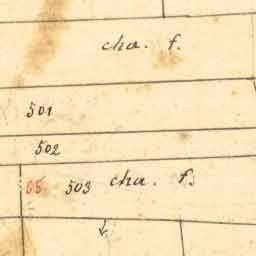 cha. f.
501
502
65 503 cha. f.